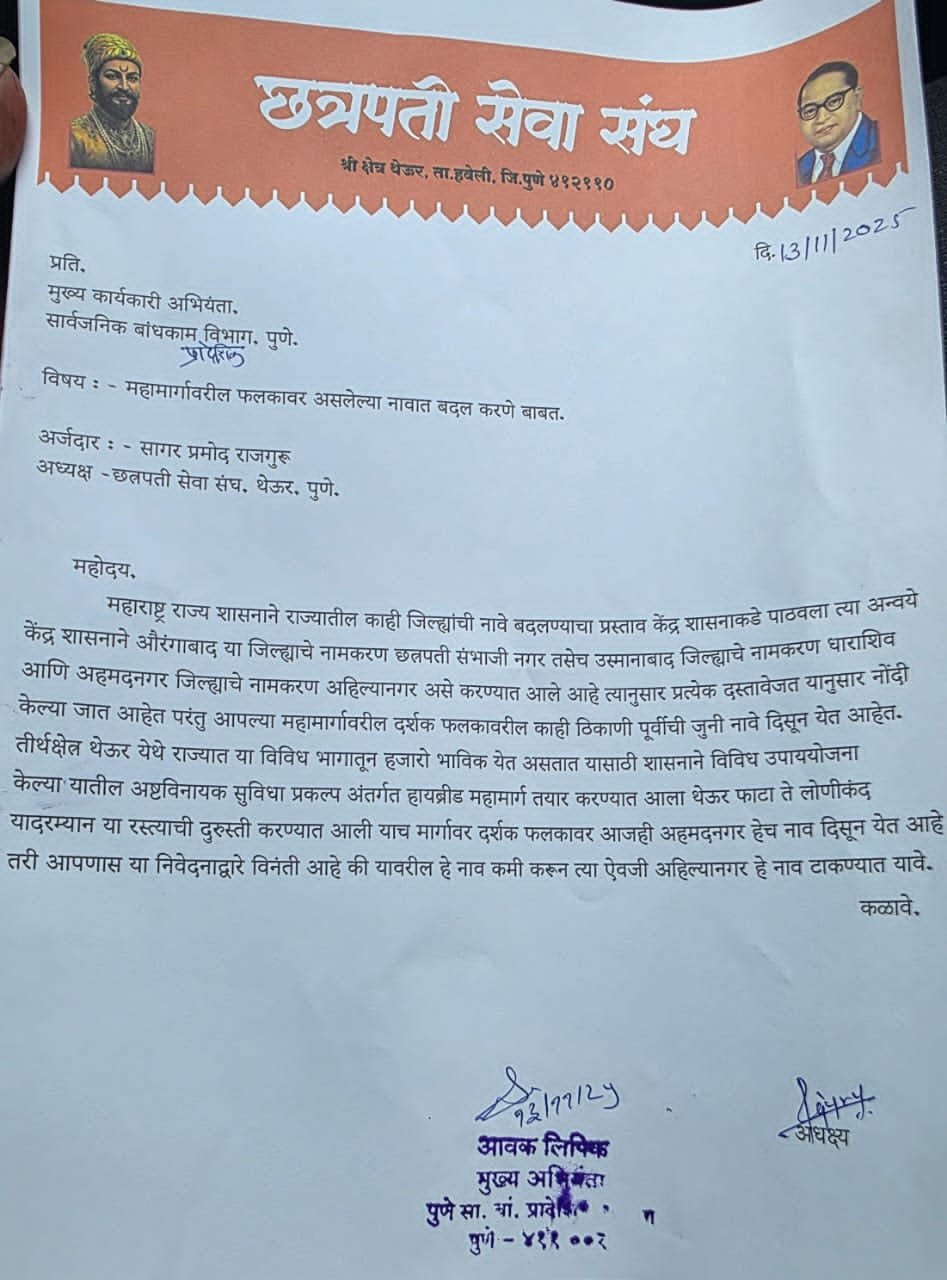 छत्रपती सेवा संघ
श्री क्षेत्र थेऊर, ता.हवेली, जि.पुणे ४१२११०
दि. 13/11/2025
प्रति.
मुख्य कार्यकारी अभियंता.
सार्वजनिक बांधकाम विभाग. पुणे.
प्रादेशिक
विषय : - महामार्गावरील फलकावर असलेल्या नावात बदल करणे बाबत.
अर्जदार : - सागर प्रमोद राजगुरू
अध्यक्ष -छत्रपती सेवा संघ. थेऊर. पुणे.
महोदय.
महाराष्ट्र राज्य शासनाने राज्यातील काही जिल्ह्यांची नावे बदलण्याचा प्रस्ताव केंद्र शासनाकडे पाठवला त्या अन्वये
केंद्र शासनाने औरंगाबाद या जिल्ह्याचे नामकरण छत्रपती संभाजी नगर तसेच उस्मानाबाद जिल्ह्याचे नामकरण धाराशिव
आणि अहमदनगर जिल्ह्याचे नामकरण अहिल्यानगर असे करण्यात आले आहे त्यानुसार प्रत्येक दस्तावेजत यानुसार नोंदी
केल्या जात आहेत परंतु आपल्या महामार्गावरील दर्शक फलकावरील काही ठिकाणी पूर्वीची जुनी नावे दिसून येत आहेत.
तीर्थक्षेत्र थेऊर येथे राज्यात या विविध भागातून हजारो भाविक येत असतात यासाठी शासनाने विविध उपाययोजना
केल्या यातील अष्टविनायक सुविधा प्रकल्प अंतर्गत हायब्रीड महामार्ग तयार करण्यात आला थेऊर फाटा ते लोणीकंद
यादरम्यान या रस्त्याची दुरुस्ती करण्यात आली याच मार्गावर दर्शक फलकावर आजही अहमदनगर हेच नाव दिसून येत आहे
तरी आपणास या निवेदनाद्वारे विनंती आहे की यावरील हे नाव कमी करून त्या ऐवजी अहिल्यानगर हे नाव टाकण्यात यावे.
कळावे.
१३/११/२५
आवक लिपिक
मुख्य अभियंता
पुणे सा. बां.
पुणे - ४११ ००१
अध्यक्ष